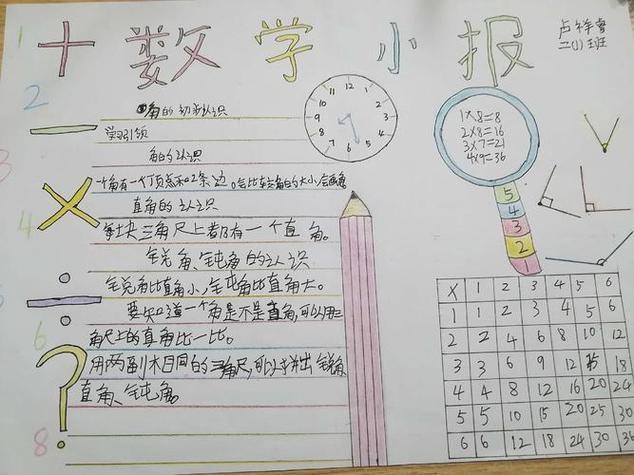 十数学小报
卢祥睿
二(1)班
1
2
3
4
6
8
①角的初步认识
学习引领
角的认识
一个角有一个顶点和2条边。会比较角的大小,会画角
直角的认识
每块三角尺上都有一个直角。
锐角、钝角的认识
锐角比直角小,钝角比直角大。
要知道一个角是不是直角,可以用三
角尺上的直角比一比。
用两副相同的三角尺,可以拼出锐角
直角、钝角。
12 1 2 3 4 5 6 7 8 9 10 11
1×8=8
2×8=16
3×7=21
4×9=36
5
4
3
2
1
× 1 2 3 4 5 6
1 1 2 3 4 5 6
2 2 4 6 8 10 12
3 3 6 9 12 15 18
4 4 8 12 16 20 24
5 5 10 15 20 25 30
6 6 12 18 24 30 36